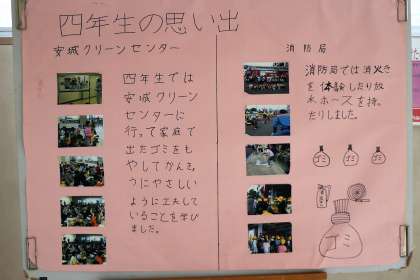 四年生の思い出
安城クリーンセンター
四年生では
安城クリーン
センターに
行って家庭で
出たゴミをも
やしてかんき
うにやさしい
ように工夫して
いることを学び
ました。
消防局
消防局では消火き
を体験したり放
水ホースを持っ
たりしました。
ゴミ
ゴミ
ゴミ
ゴミ